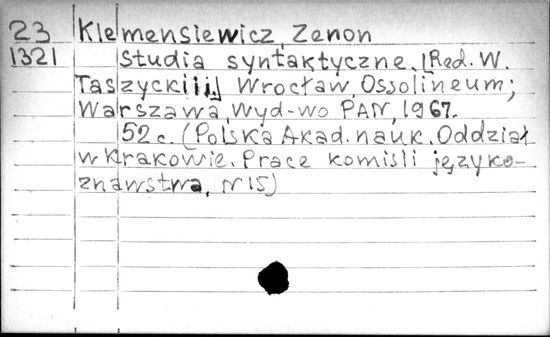 23 Klemensiewicz, Zenon
1321 Studia syntaktyczne. [Red. W.
Taszycki i i.] Wrocław, Ossolineum;
Warszawa, Wyd-wo PAN, 1967.
52 c. (Polska Akad. nauk. Oddział
w Krakowie. Prace komisli językо-
znawstwa, N 15)